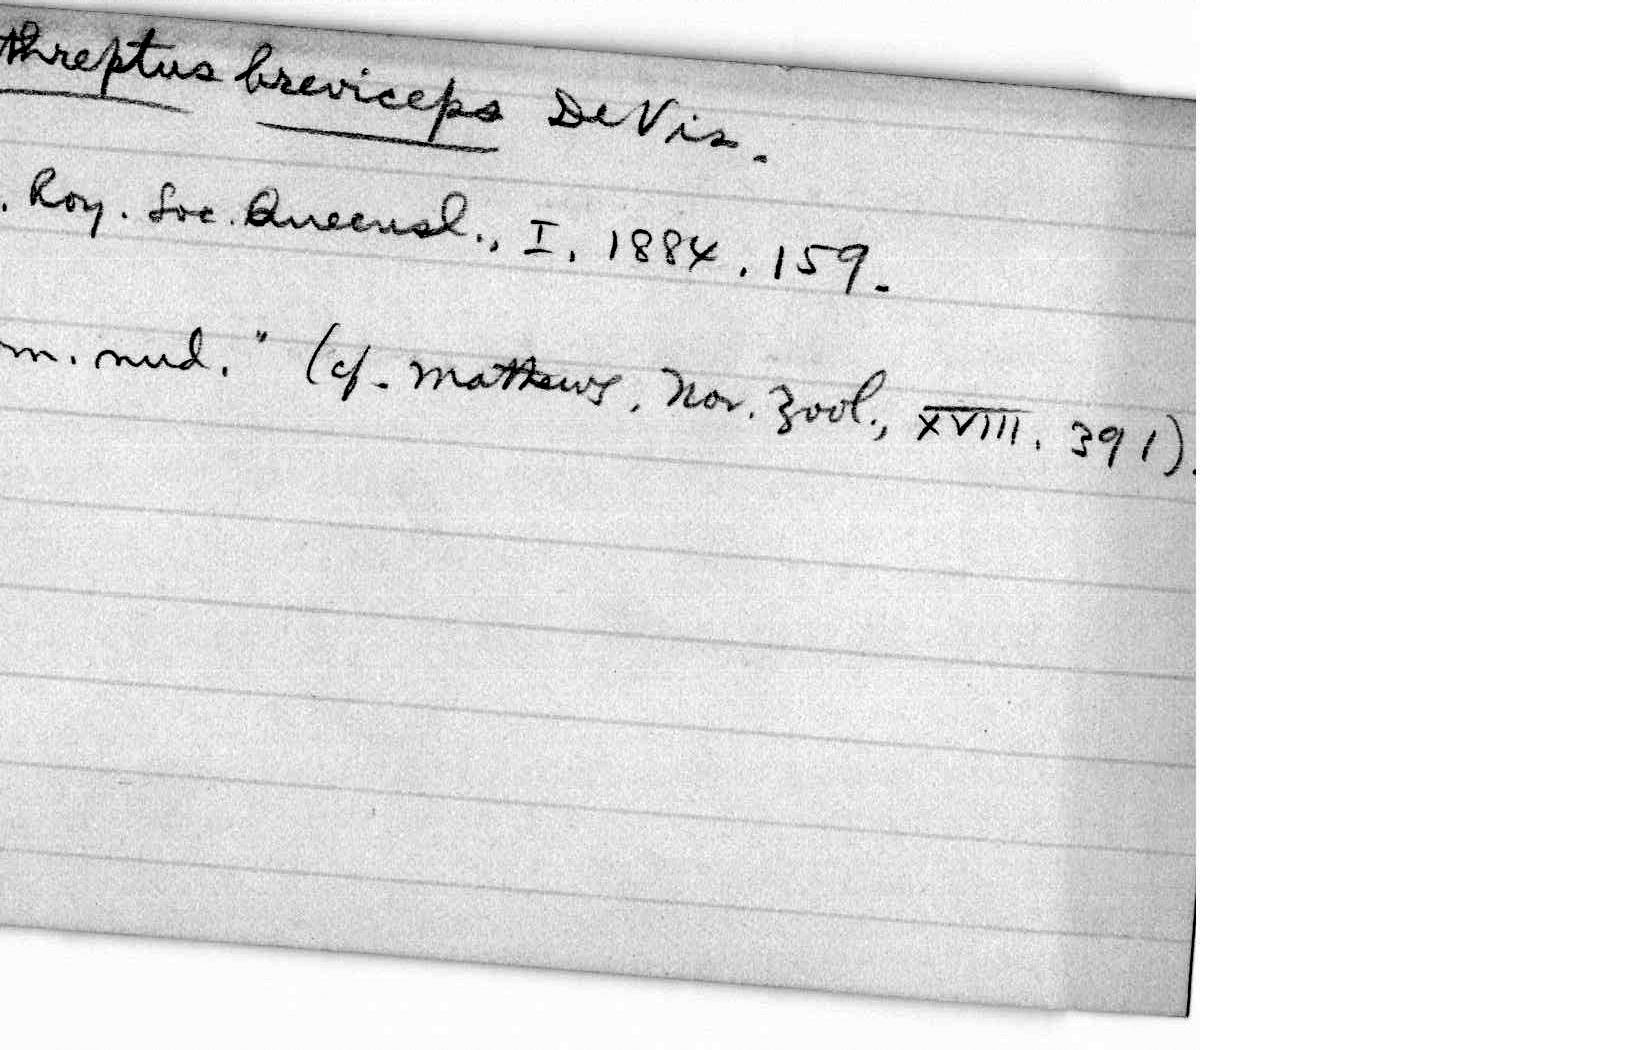 threptus breviceps De Vis.
. Roy. Soc. Queensl., I, 1884, 159.
m. nud." (cf. Mathews, Nov. Zool., XVIII, 391).